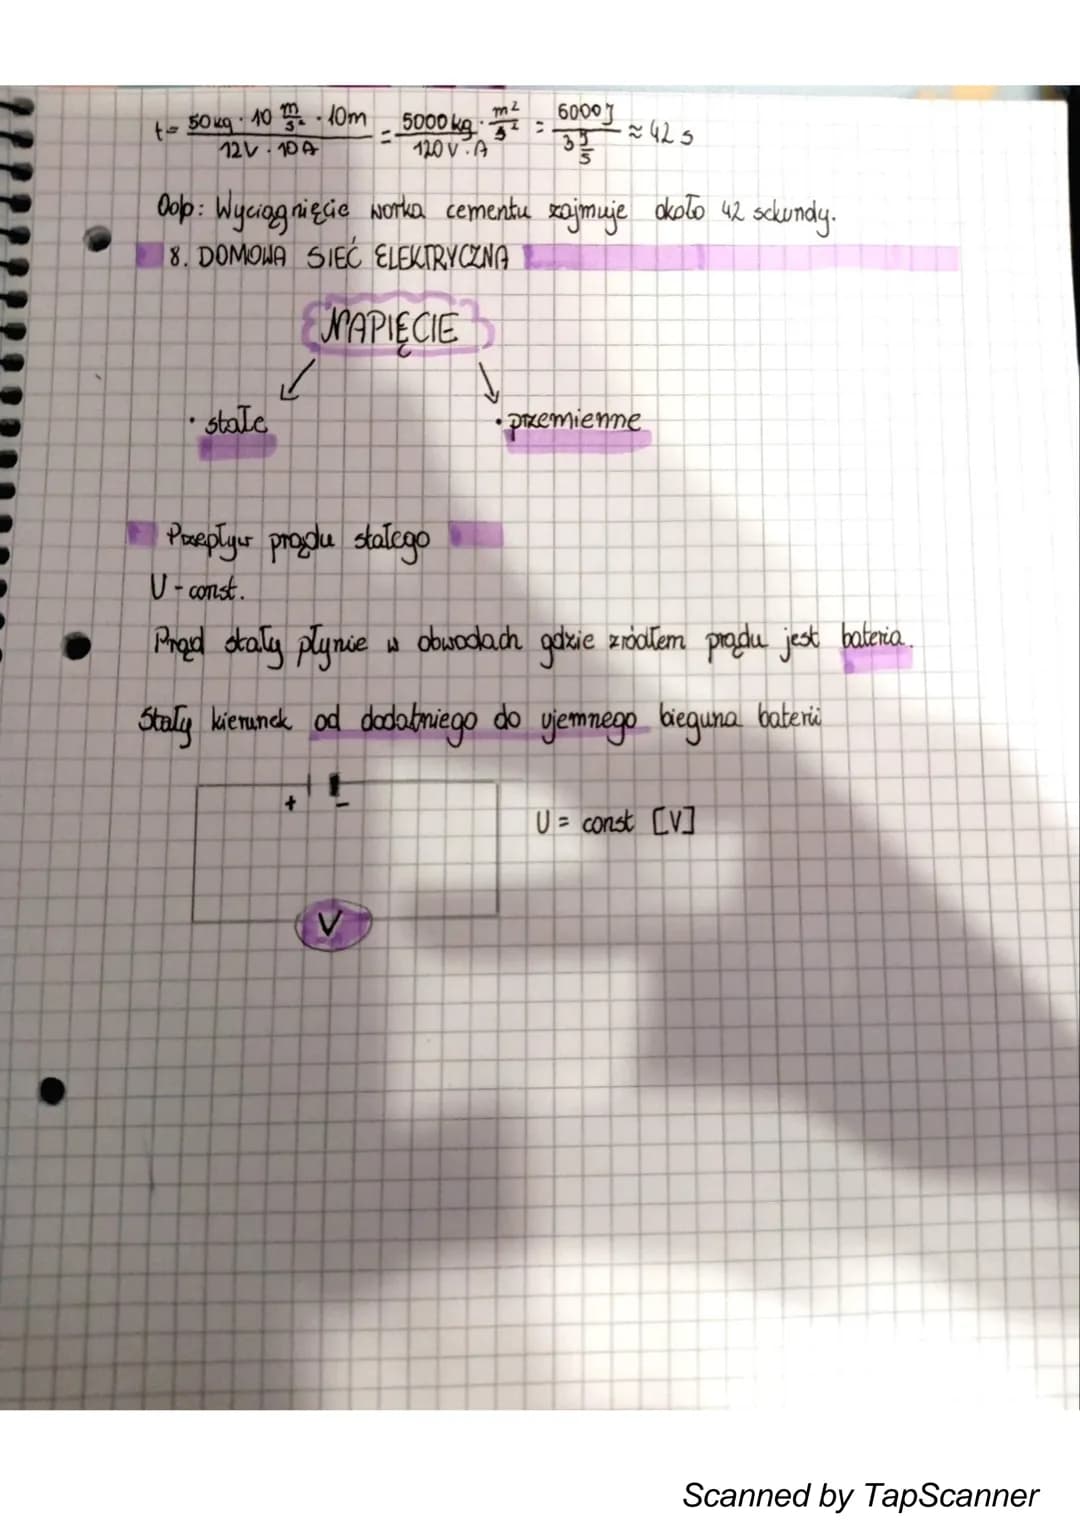 t= 50kg · 10 m/s² · 10m / 12V · 10A = 5000kg · m²/s² / 120V · A = 6000J / 3 J/s ≈ 42 s
Odp: Wyciągnięcie worka cementu zajmuje około 42 sekundy.
8. DOMOWA SIEĆ ELEKTRYCZNA
NAPIĘCIE
· stałe · przemienne
Przepływ prądu stałego
U - const.
Prąd stały płynie w obwodach gdzie źródłem prądu jest bateria.
Stały kierunek od dodatniego do ujemnego bieguna baterii
+ -
U = const [V]
V
Scanned by TapScanner